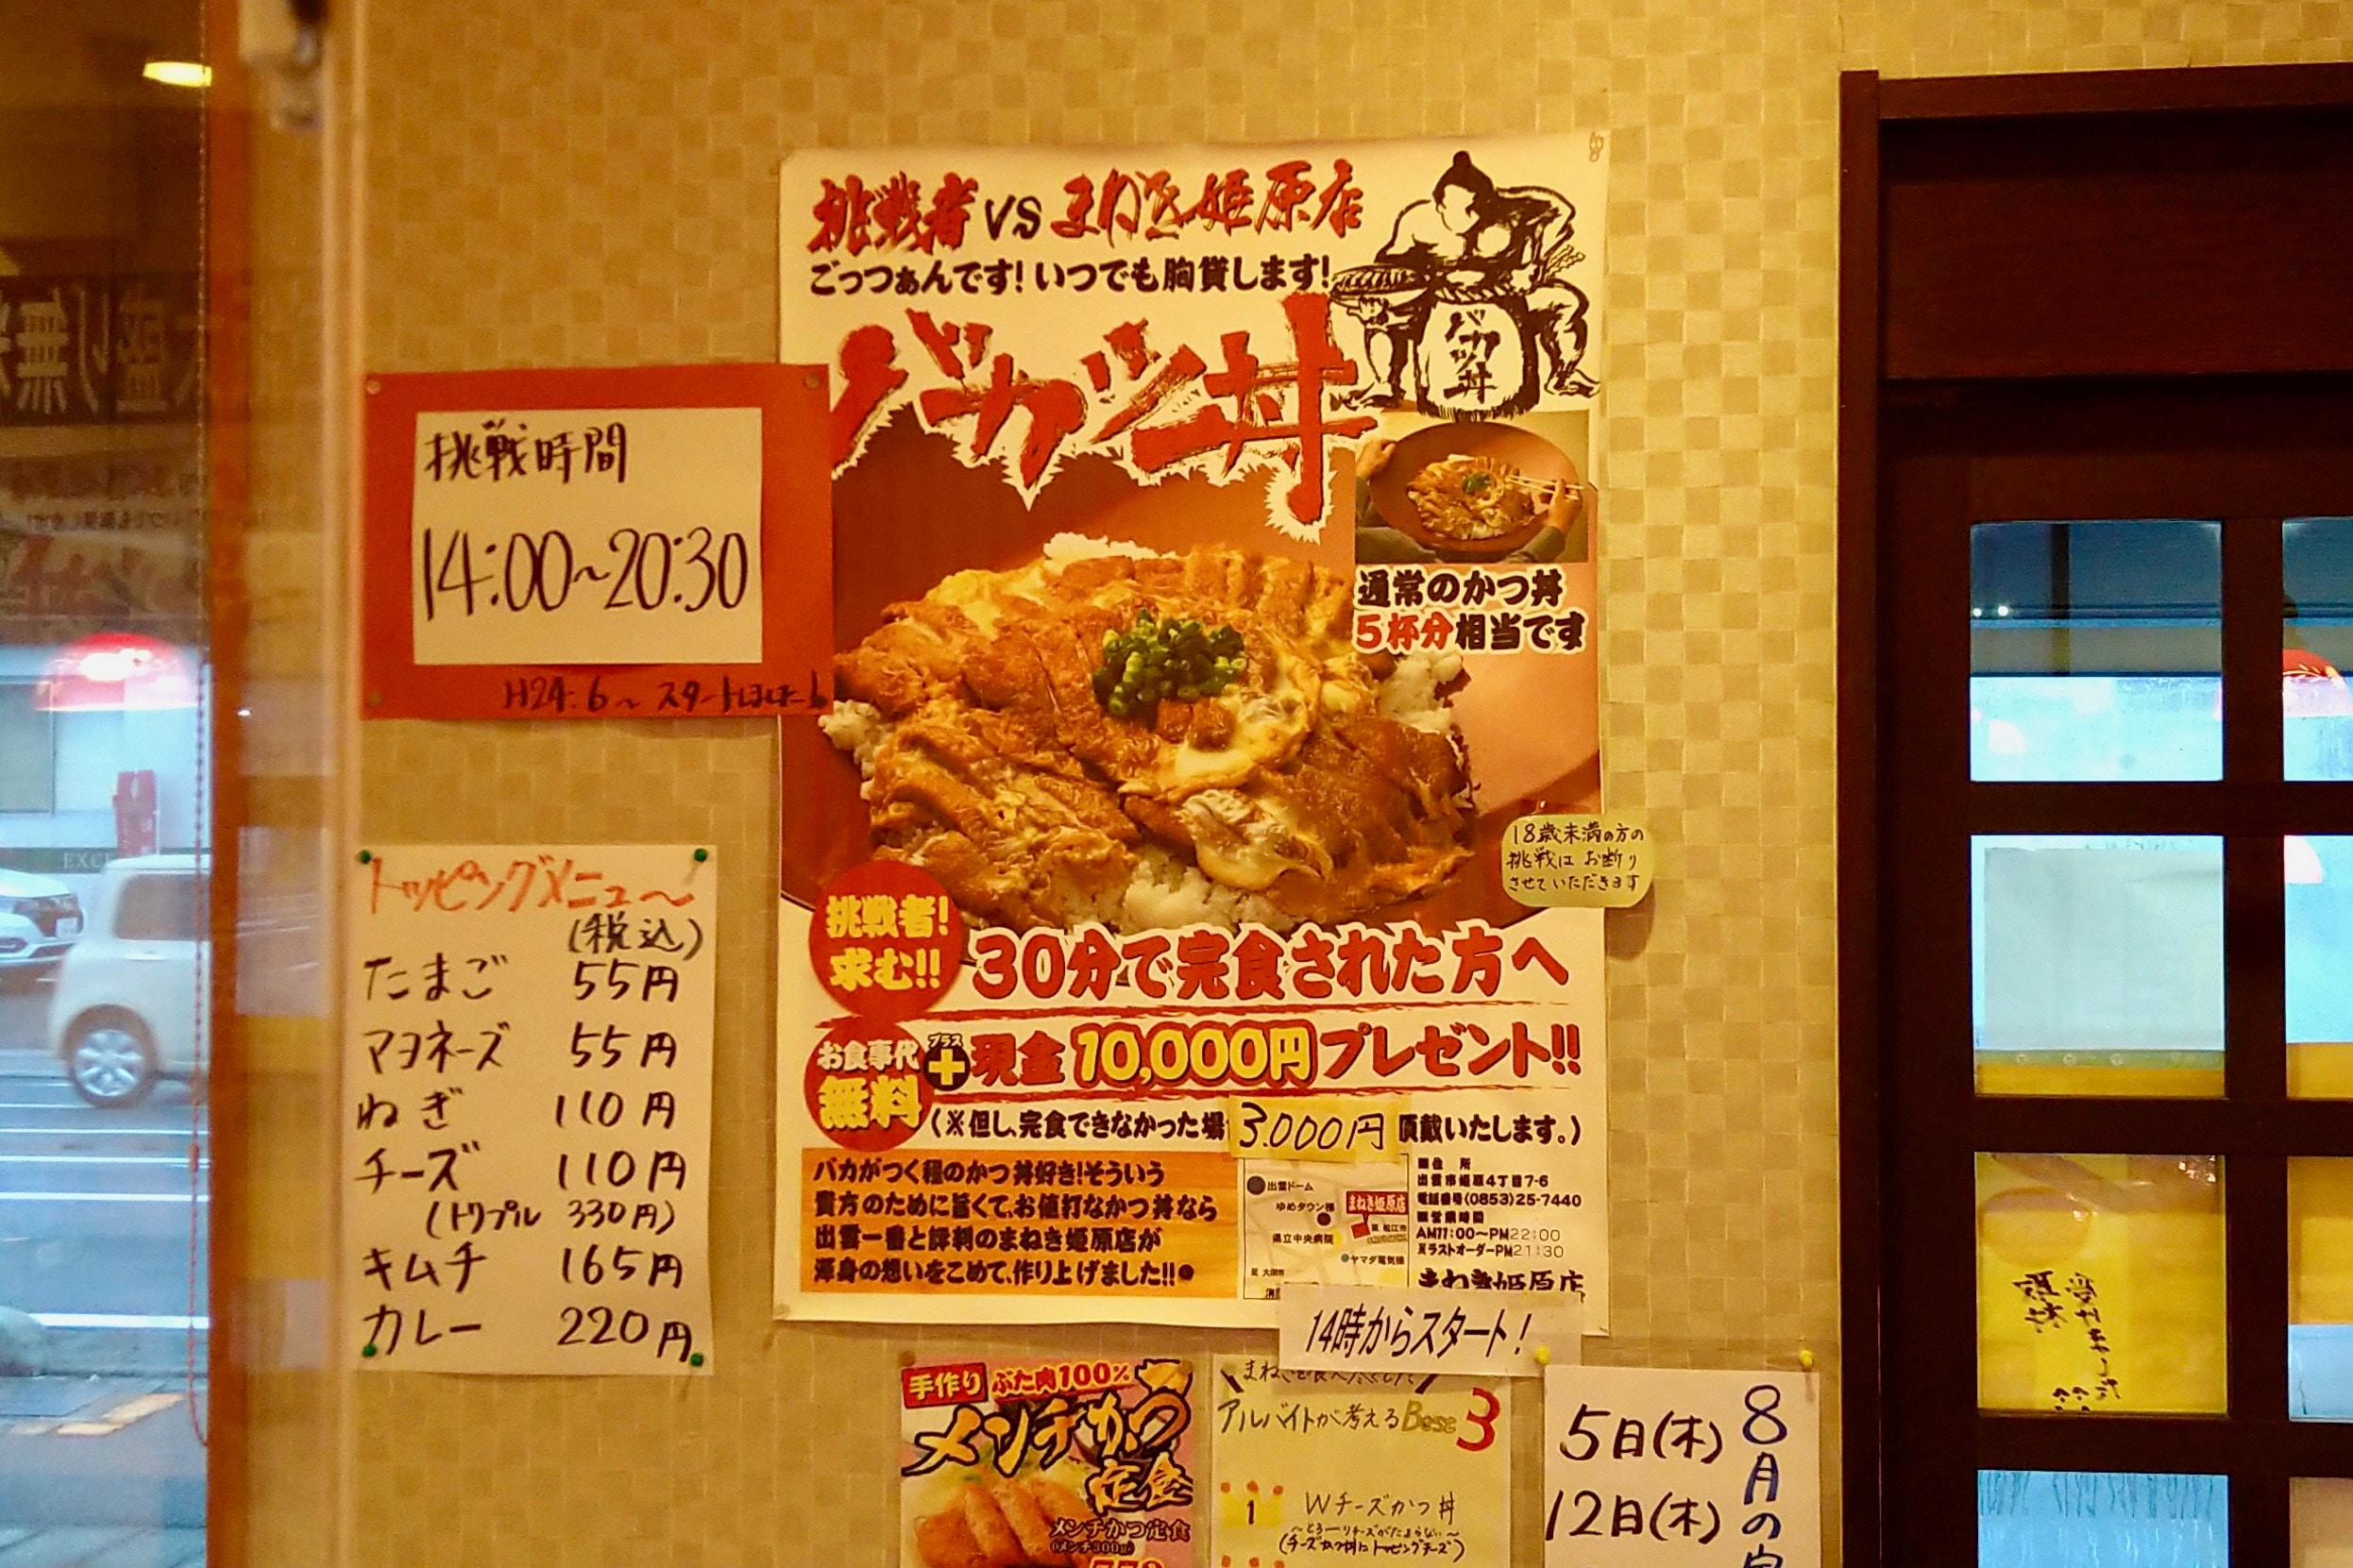 挑戦者 VS まねき姫原店
ごっつぁんです! いつでも胸貸します!
バカツ丼
バカツ丼
通常のかつ丼
5杯分相当です
挑戦時間
14:00~20:30
H24.6~ スタートしました
18歳未満の方の
挑戦はお断り
させていただきます
挑戦者!
求む!!
30分で完食された方へ
お食事代
無料
プラス
+
現金10,000円プレゼント!!
(※但し、完食できなかった場 3.000円 頂戴いたします。)
バカがつく程のかつ丼好き!そういう
貴方のために旨くて、お値打なかつ丼なら
出雲一番と評判のまねき姫原店が
渾身の想いをこめて、作り上げました!!
出雲ドーム
ゆめタウン様
まねき姫原店
至 松江市
県立中央病院
ヤマダ電気様
至 大田市
■住 所
出雲市姫原4丁目7-6
電話番号(0853)25-7440
■営業時間
AM11:00~PM22:00
ラストオーダーPM21:30
まねき姫原店
14時からスタート!
トッピングメニュ~
(税込)
たまご 55円
マヨネーズ 55円
ねぎ 110円
チーズ 110円
(トリプル 330円)
キムチ 165円
カレー 220円
手作り ぶた肉100%
メンチかつ
定食
メンチかつ定食
(メンチ300g)
アルバイトが考えるBest3
1 Wチーズかつ丼
(チーズかつ丼にトッピングチーズ)
8月の
5日(木)
12日(木)